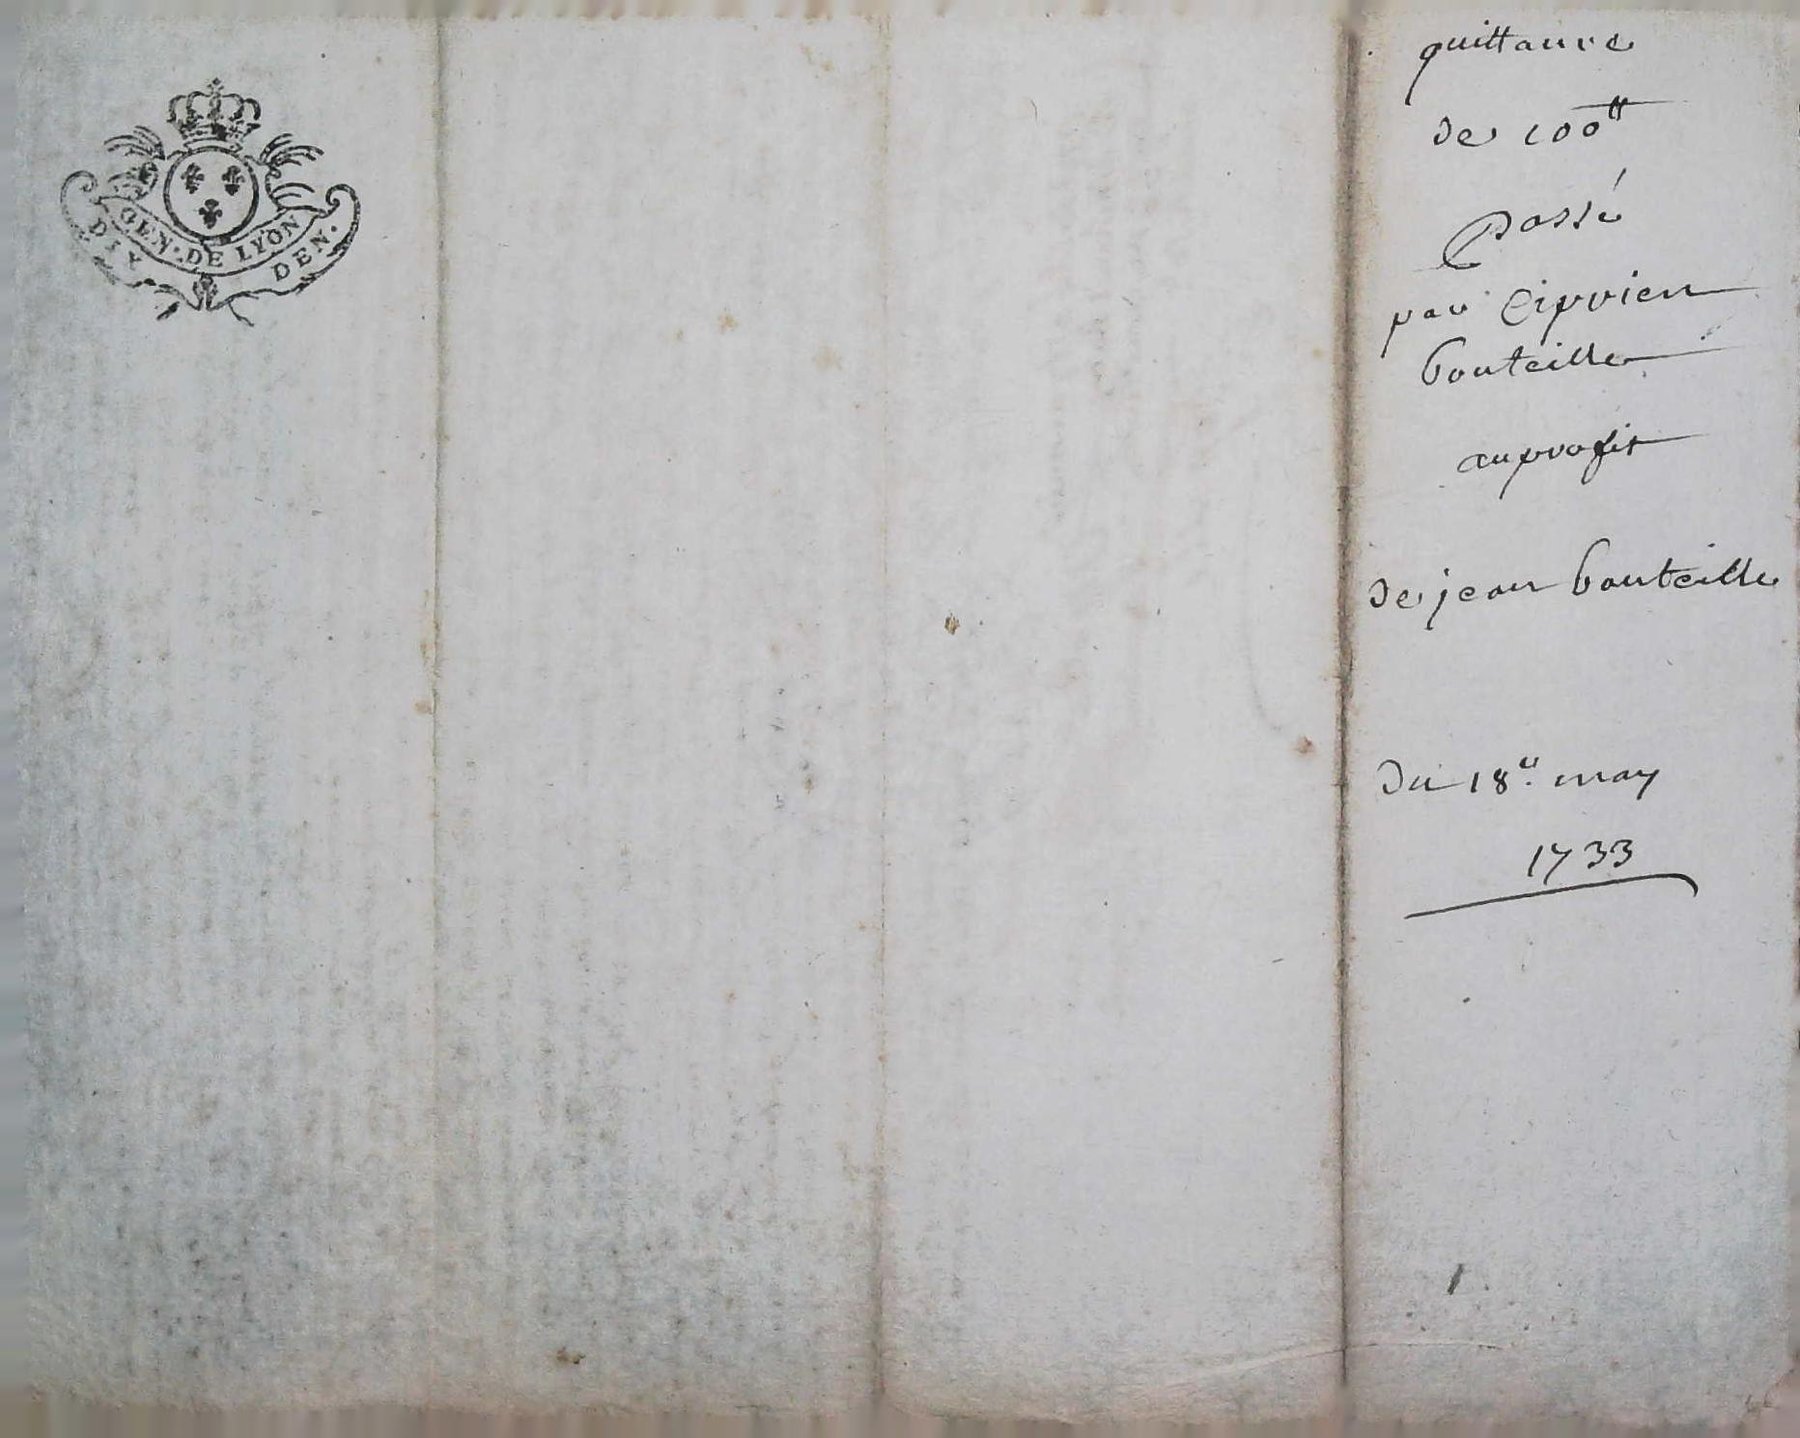 GEN. DE LYON
DIX DEN.
quittance
de 100 ₶
passé
par Ciprien
bouteille
au profit
de jean bouteille
du 18e. may
1733